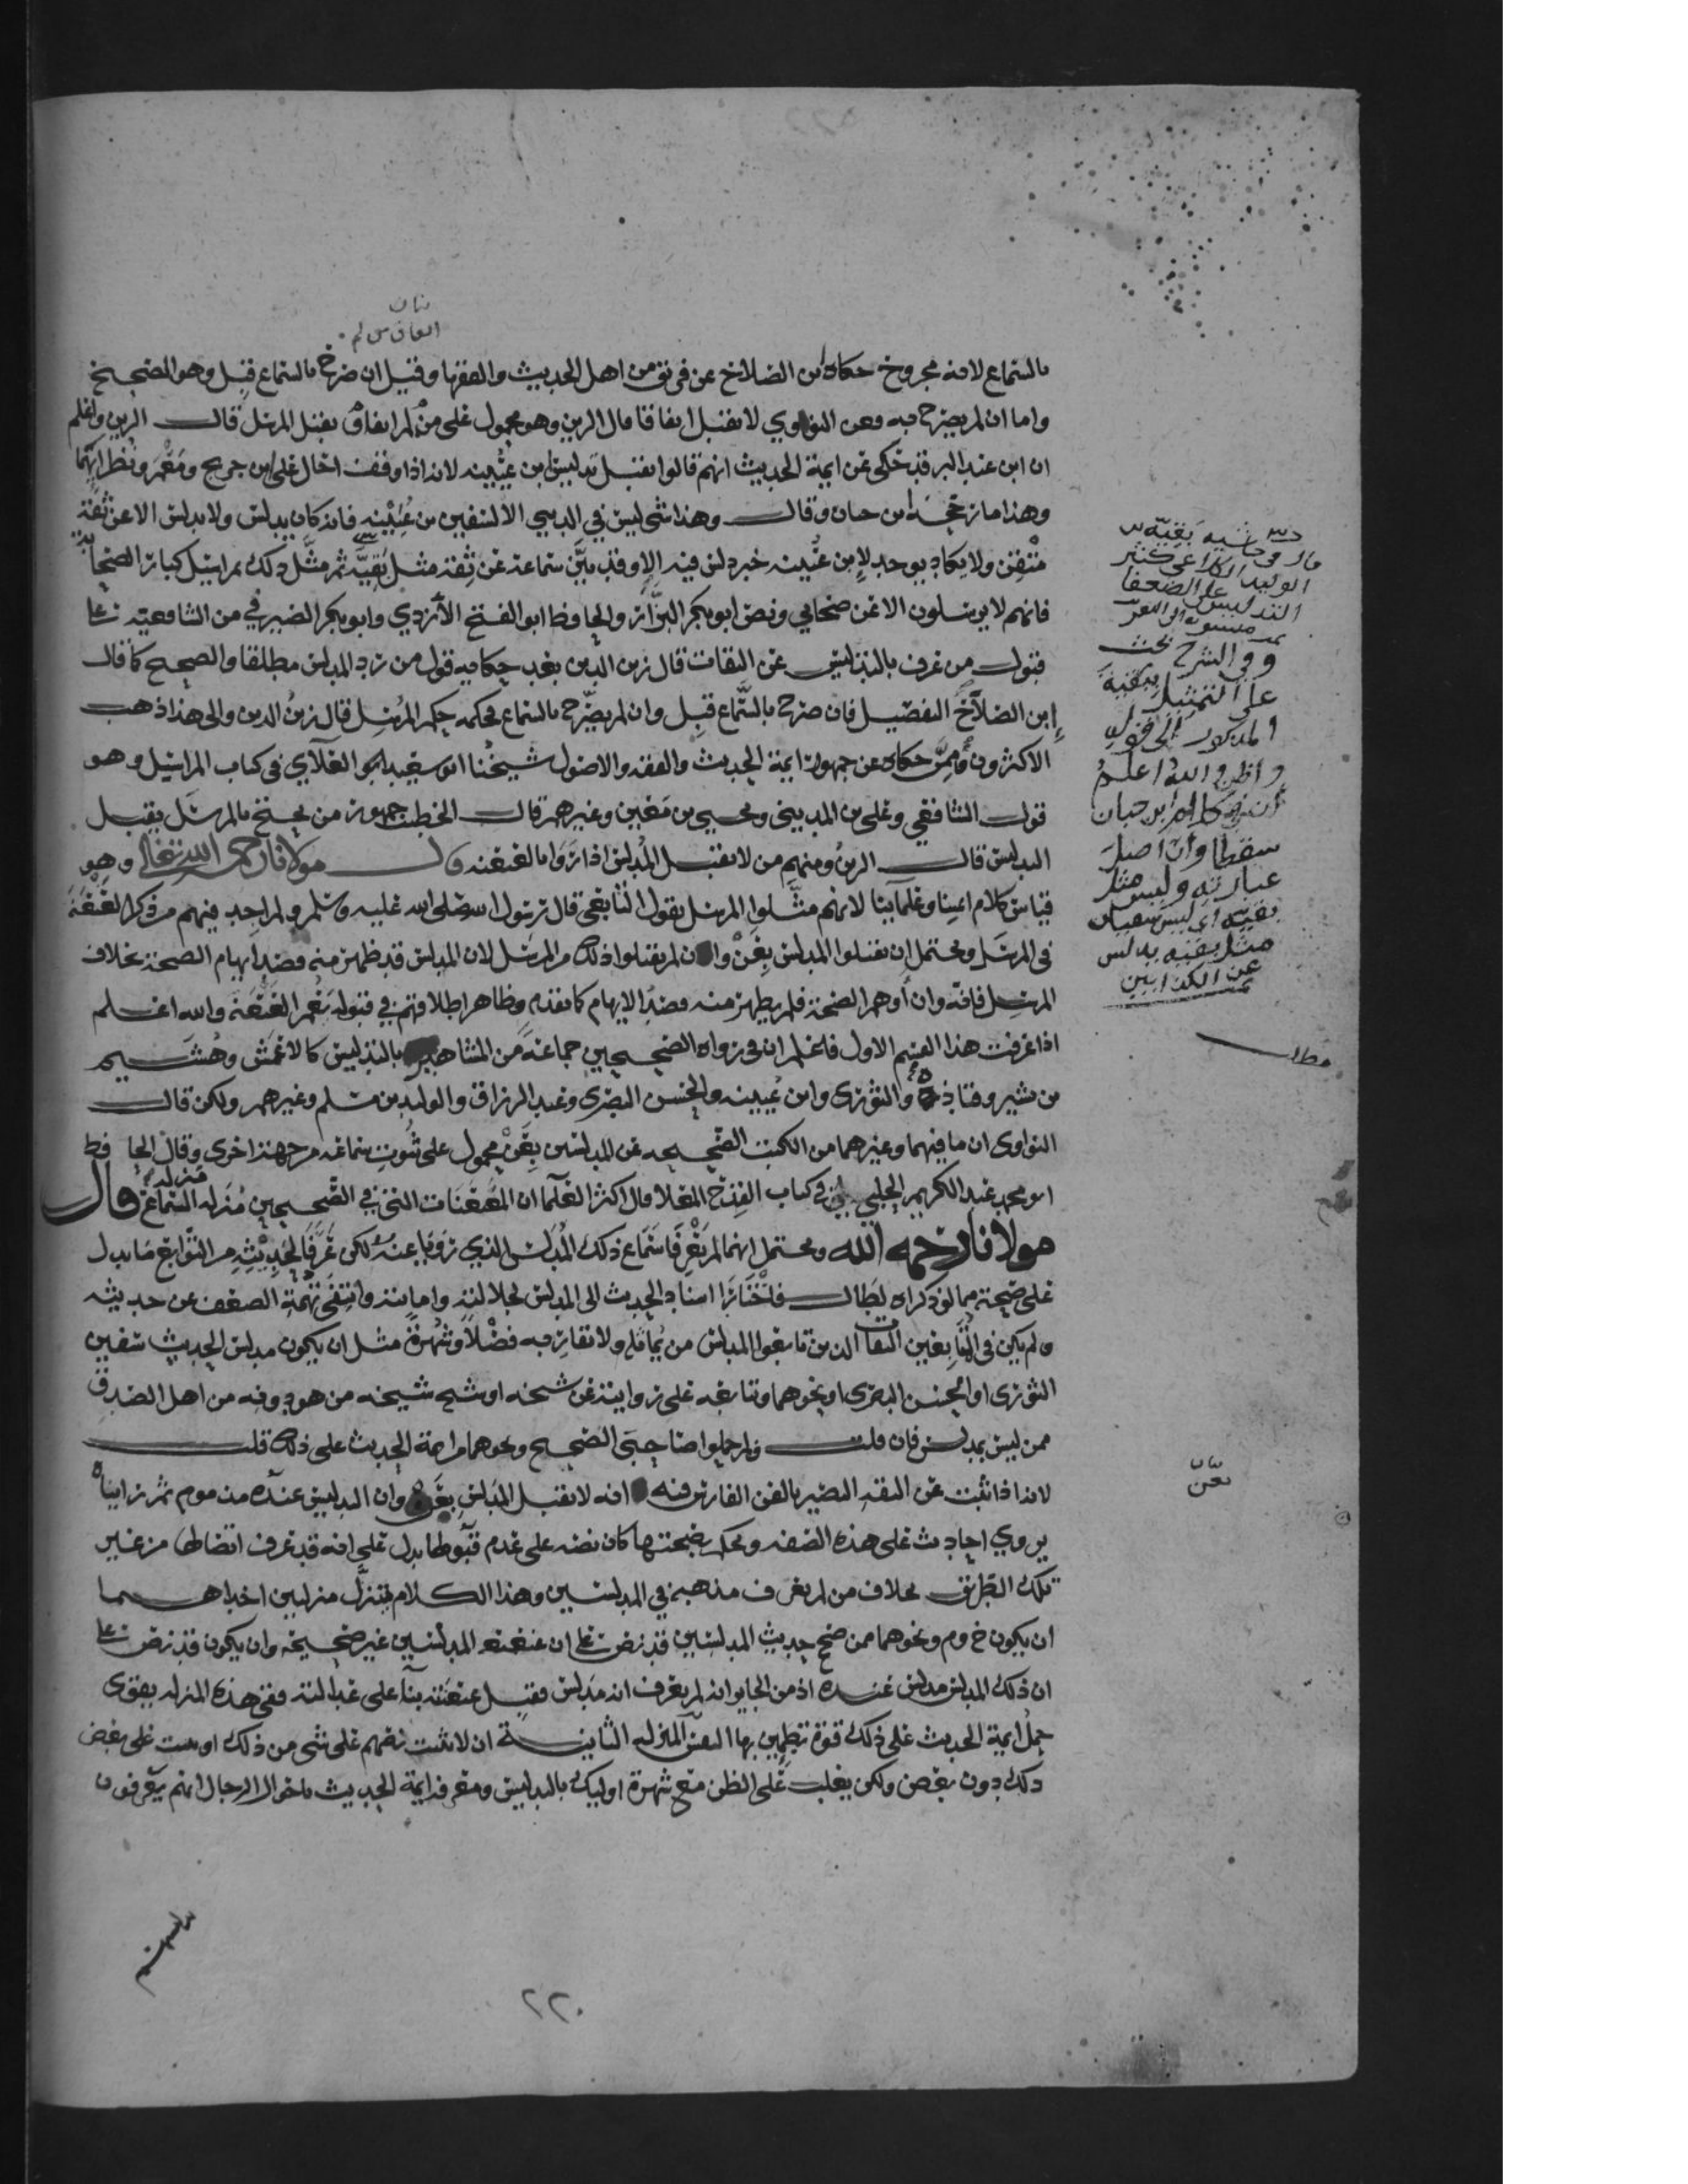 بالسماع لانه مجروح حكاه ابن الصلاح عن فريق من اهل الحديث والفقها وقيل ان صرح بالسماع قبل وهو الصحيح
واما ان لم يصرح به فعن النواوي لا يقبل اتفاقا قال الزين وهو محمول على من لم يقبل المرسل قال الزين واعلم
ان ابن عبد البر قد حكى عن ايمة الحديث انهم قالوا يقبل تدليس ابن عيينه لانه اذا وقف احال على ابن جريج ومعمر ونظرايهما
وهذا ما رجحه ابن حبان وقال وهذا شي ليس في الدنيي الا لسفين بن عيينه فانه كان يدلس ولا يدلس الا عن ثقة
متقن ولا يكاد يوجد لابن عيينه خبر دلس فيه الا وقد بين سماعه عن ثقة مثل بقيته ثم مثل ذلك بمراسيل كبار الصحابة
فانهم لا يرسلون الا عن صحابي ونص ابو بكر البزار والحافظ ابو الفتح الازدي وابو بكر الصيرفي من الشافعية على
قبول من عرف بالتدليس عن الثقات قال زين الدين بعد حكايه قول من رد المدلس مطلقا والصحيح كما قال
ابن الصلاح التفصيل فان صرح بالسماع قبل وان لم يصرح بالسماع فحكمه حكم المرسل قال زين الدين والى هذا ذهب
الاكثرون وممن حكاه عن جمهور ايمة الحديث والفقه والاصول شيخنا ابو سعيد العلآي في كتاب المراسيل وهو
قول الشافعي وعلي بن المديني ويحيى بن معين وغيرهم قال الخطيب جمهور من يحتج بالمرسل يقبل
التدليس قال الزين ومنهم من لا يقبل المدلس اذا روا بالعنعنه قال مولانا رحمه الله تعالى وهو
قياس كلام ايمتنا وعلمآينا لانهم مثلوا المرسل بقول التابعي قال رسول الله صلى الله عليه وسلم ولم اجد فيهم من ذكر العنعنة
في المرسل ويحتمل ان يقبلوا المدلس بعن وان لم يقبلوا ذلك من المرسل لان المدلس قد ظهر منه قصد ايهام الصحة بخلاف
المرسل فانه وان اوهم الصحة فلم يظهر منه قصد الايهام كما تقدم وظاهر اطلاقهم في قبوله يعم العنعنة والله اعلم
اذا عرفت هذا القسم الاول فاعلم ان في رواه الصحيحين جماعة من المشاهير بالتدليس كالاعمش وهشيم
بن بشير وقتادة والثوري وابن عيينه والحسن البصري وعبد الرزاق والوليد بن مسلم وغيرهم ولكن قال
النواوي ان ما فيهما وغيرهما من الكتب الصحيحه عن المدلسين بعن محمول على ثبوت سماعه من جهة اخرى وقال الحافظ
ابو محمد عبد الكريم الحلبي في كتاب القدح المعلا قال اكثر العلما ان المعنعنات التي في الصحيحين منزله السماع قال
مولانا رحمه الله ويحتمل انهما لم يعرفا سماع ذلك المدلس الذي رويا عنه لكن عرفا لحديثه من التوابع ما يدل
على صحته مما لو ذكراه لطال فاختارا اسناد الحديث الى المدلس لجلالته وامانته وانتفى تهمة الضعف عن حديثه
ولم يكن في التابعين الثقات الذين تابعوا المدلس من يماثله ولا يقاربه فضلا وشهرة مثل ان يكون مدلس الحديث سفين
الثوري او الحسن البصري او نحوهما وتتابعه على روايته عن شيخه او شيخ شيخه من هو دونه من اهل الصدق
ممن ليس بمدلس فان قلت ولم حملوا صاحبي الصحيح ونحوهما من ايمة الحديث على ذلك قلت
لانه اذا ثبت عن الثقه البصير بالفن الفارس فيه انه لا يقبل المدلس بعن وان التدليس عنده مذموم ثم رايناه
يروي احاديث على هذه الصفه ويحكم بصحتها كان نصه على عدم قبولها يدل على انه قد عرف اتصالها من غير
تلك الطريق بخلاف من لم يعرف مذهبه في المدلسين وهذا الكلام يتنزل منزلتين احداهما
ان يكون خ وم ونحوهما ممن صحح حديث المدلسين قد نص على ان عنعنه المدلسين غير صحيحه وان يكون قد نص على
ان ذلك المدلس مدلس عنده اذ من الجايز انه لم يعرف انه مدلس فقبل عنعنته بنآ على عدالته ففي هذه المنزله يقوى
حمل ايمة الحديث على ذلك قوة تطمين بها النفس المنزله الثانيه ان لا يثبت نصهم على شي من ذلك او يثبت على بعض
ذلك دون بعض ولكن يغلب على الظن مع شهرة اوليك بالتدليس ومعرفة ايمة الحديث باحوال الرجال انهم يعرفون
قال في حاشيه بقيه بن
الوليد الكلاعي كثير
التدليس على الضعفا
وفي الشرح بحث
على التمثيل ببقية
المذكور الى قوله
واظن والله اعلم
ان في كلام ابن حبان
سقطا وان اصل
عبارته وليس مثل
بقيه اي ليس سفيان
مثل بقيه يدلس
عن الكذابين
مطلب
٢٢٠